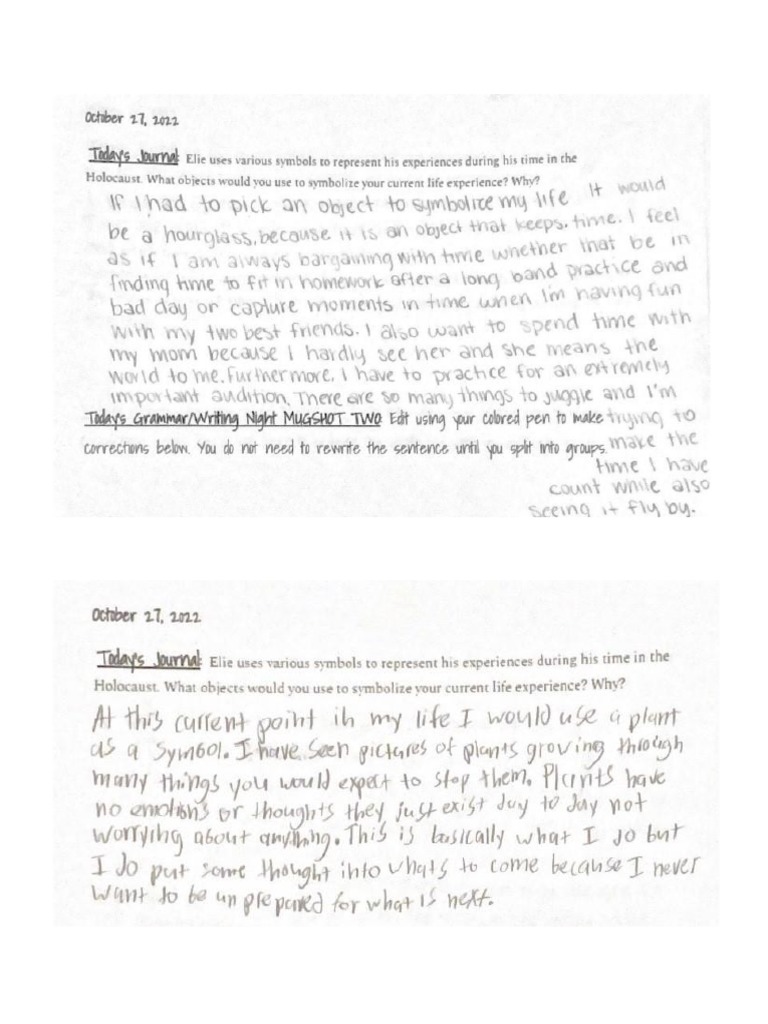 October 27, 2022
Today's Journal: Elie uses various symbols to represent his experiences during his time in the
Holocaust. What objects would you use to symbolize your current life experience? Why?
If I had to pick an object to symbolize my life It would
be a hourglass, because it is an object that keeps. time. I feel
as if I am always bargaining with time whether that be in
finding time to fit in homework after a long band practice and
bad day or capture moments in time when I'm having fun
with my two best friends. I also want to spend time with
my mom because I hardly see her and she means the
world to me. Furthermore, I have to practice for an extremely
important audition. There are so many things to juggle and I'm
Today's Grammar/Writing Night MUGSHOT TWO: Edit using your colored pen to make trying to
corrections below. You do not need to rewrite the sentence until you split into groups. make the
time I have
count while also
seeing it fly by.
October 27, 2022
Today's Journal: Elie uses various symbols to represent his experiences during his time in the
Holocaust. What objects would you use to symbolize your current life experience? Why?
At this current point in my life I would use a plant
as a symbol. I have seen pictures of plants growing through
many things you would expect to stop them. Plants have
no emotions or thoughts they just exist day to day not
worrying about anything. This is basically what I do but
I do put some thought into whats to come because I never
want to be unprepared for what is next.